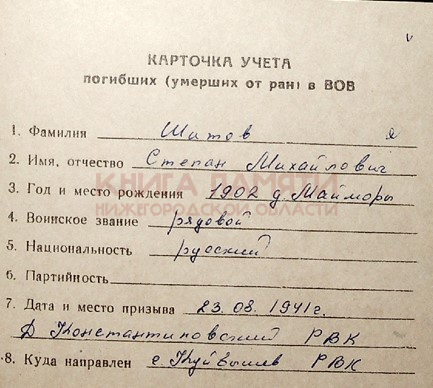 КАРТОЧКА УЧЕТА
погибших (умерших от ран) в ВОВ
1. Фамилия Шитов я
2. Имя, отчество Степан Михайлович
КНИГА ПАМЯТИ
3. Год и место рождения 1902 д. Майморы
НИЖЕГОРОДСКОЙ ОБЛАСТИ
4. Воинское звание рядовой
5. Национальность русский
6. Партийность
7. Дата и место призыва 23.08.1941г.
Д Константиновский РВК
8. Куда направлен с Куйбышев РВК